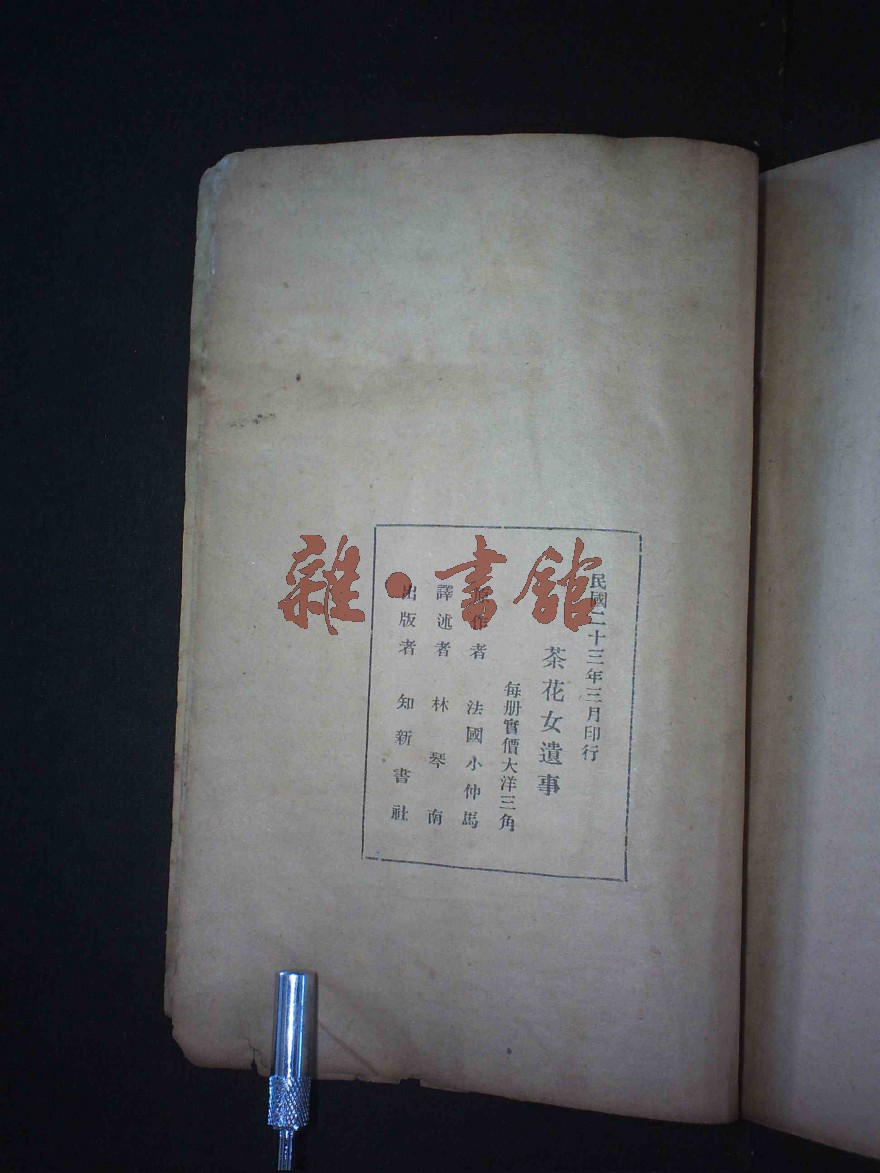 民國二十三年三月印行
茶花女遺事
每册實價大洋三角
原作者 法國小仲馬
譯述者 林琴南
出版者 知新書社
雜·書館